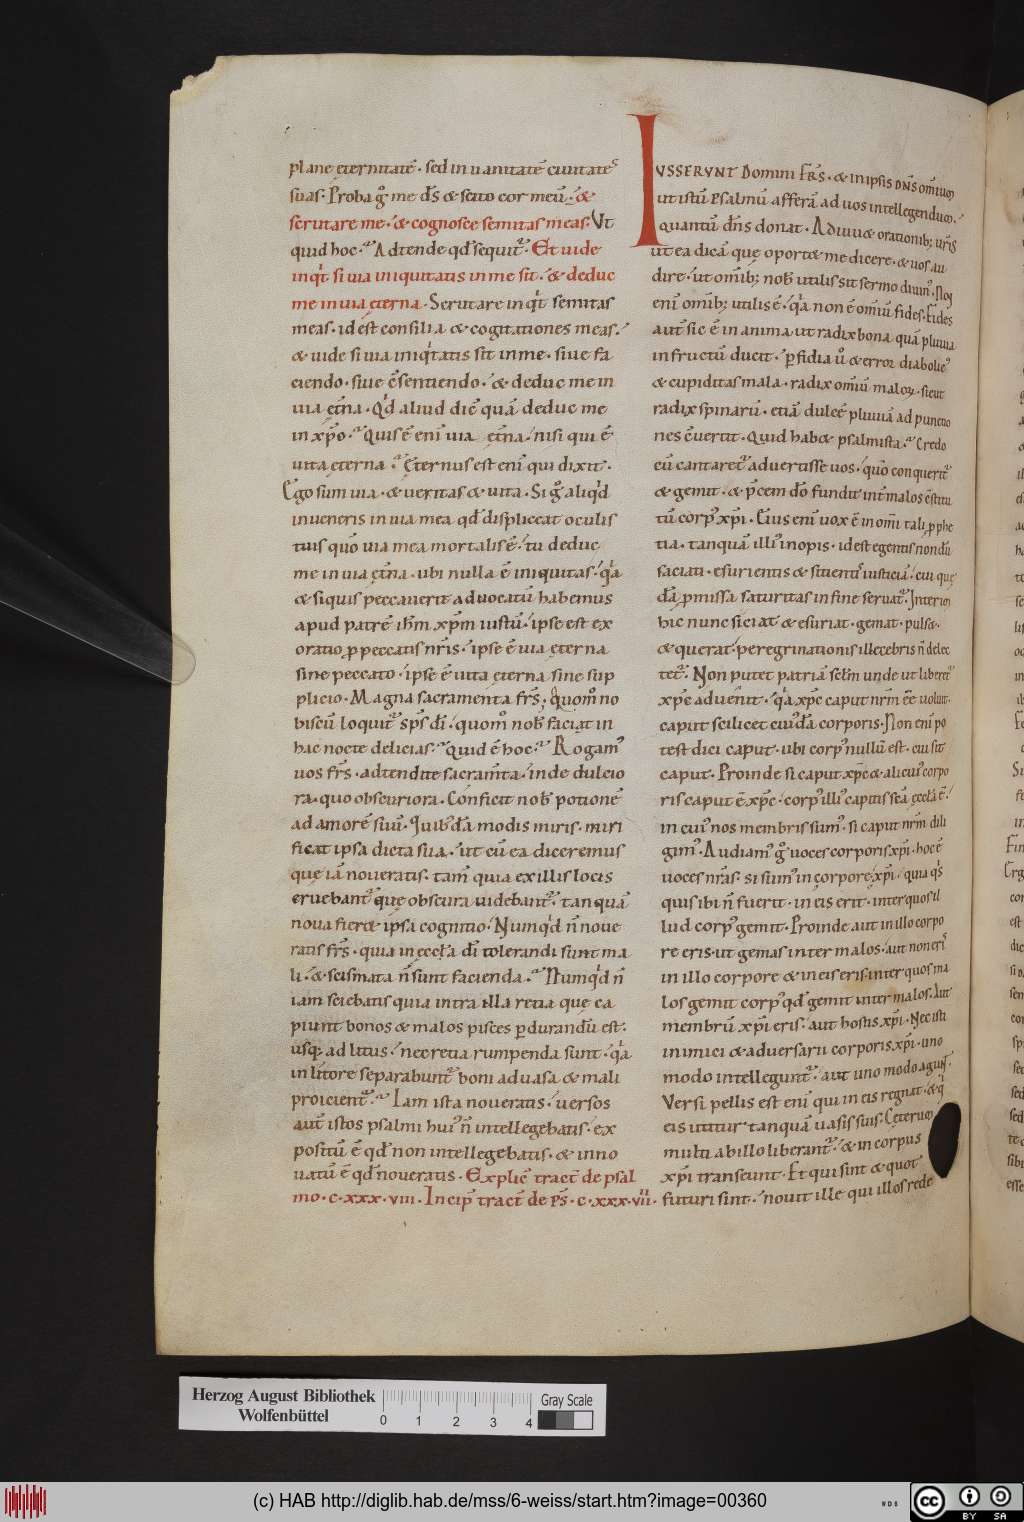 plane ęternitatē · sed in uanitatē ciuitateſ
suas · Proba g̊ me dſ̄ & scito cor meū · &
scrutare me · & cognosce semitas meas · Vt
quid hoc · Adtende qđ sequit̃ · Et uide
inq̇t si uia iniquitatis in me sit · & deduc
me in uia ęterna · Scrutare inq̇t semitas
meas · id est consilia & cogitationes meas ·
& uide si uia iniq̇tatis sit in me · siue fa
ciendo · siue c̄sentiendo · & deduc me in
uia ęt̄na · Qđ aliud dic̄ quā deduc me
in xp̄o · Quis ē enī uia ęt̄na · nisi qui ē
uita ęterna · Ęternus est enī qui dixit ·
Ego sum uia · & ueritas & uita · Si g̊ aliq̇d
inueneris in uia mea qđ displiceat oculis
tuis quō uia mea mortalis ē · tu deduc
me in uia ęt̄na · ubi nulla ē iniquitas · q̇a
& siquis peccauerit aduocatū habemus
apud patrē ih̄m xp̄m iustū · ipse est ex
oratio ꝓ peccatis nr̄is · ipse ē uia ęterna
sine peccato · ipse ē uita ęterna sine sup
plicio · Magna sacramenta fr̄s · quom̊ no
biscū loquit̃ sp̄s dī · quom̊ nob̄ faciat in
hac nocte delicias · Quid ē hoc · Rogam᾽
uos fr̄s · adtendite sacram̄ta · inde dulcio
ra · quo obscuriora · Conficit nob̄ potionē
ad amorē suū · quib᾽dā modis miris · miri
ficat ipsa dicta sua · ut cū ea diceremus
quę iā noueratis · tam̄ quia ex illis locis
eruebant̃ quę obscura uidebant̃ · tanquā
noua fier& ipsa cognitio · Numq̇d n̄ noue
ratis fr̄s · quia in ęccła dī tolerandi sunt ma
li · & scismata n̄ sunt facienda · Numq̇d n̄
iam sciebatis quia intra illa retia quę ca
piunt bonos & malos pisces ꝑdurandū est ·
usq; ad litus · nec retia rumpenda sunt · q̇a
in litore separabunt̃ boni ad uasa & mali
proicient̃ · Iam ista noueratis · uersos
aut̄ istos psalmi hui᾽ n̄ intellegebatis · ex
positū ē qđ non intellegebatis · & inno
uatū ē qđ noueratis · Explic̄ tract̄ de psal
mo · c · xxx · viii · Incip̄ tract̄ de ps̄ · c · xxx · vii ·
IVSSERVNT Domini FR̄S · & in ipsis DN̄S omiūm
ut istū Psalmū afferā ad uos intellegendum ·
quantū dn̄s donat · Adiuu& orationib; ur̄is
ut ea dicā quę oport& me dicere · & uos au
dire · ut om̄ib; nob̄ utilis sit sermo diuin᾽ · Noļ
enī om̄ib; utilis ē · q̇a non ē omiū fides · Fides
aut̄ sic ē in anima · ut radix bona quā pluuia
in fructū ducit · ꝑfidia ů & error diabolic᾽
& cupiditas mala · radix omiū maloꝝ · sicut
radix spinarū · etiā dulcē pluuiā ad punctio
nes c̄uertit · Quid hab& psalmista · Credo
eū cantaret̃ aduertisse uos · quō conquerit̃
& gemit · & p̄cem dō fundit int̄ malos c̄stitu
tū corp᾽ xp̄i · Eius enī uox ē in omī tali ꝓphe
tia · tanquā illi᾽ inopis · id est egentis nondū
saciati · esurientis & sitient᾽ iusticiā · cui quę
dā ꝓmissa saturitas in fine seruat̃ · Interim
hic nunc siciat & esuriat · gemat · puls& ·
& querat · peregrinationis illecebris n̄ delec
tet̃ · Non putet patriā selm̄ unde ut liberet̃
xp̄c aduenit · q̇a xp̄c caput nr̄m c̄e uoluit ·
caput scilicet cui᾽dā corporis · Non enī po
test dici caput · ubi corp᾽ nullū est · cui sit
caput · Proinde si caput xp̄c & alicui᾽ corpo
ris caput ē xp̄c · corp᾽ illi᾽ capitis scā ęccła ē ·
in cui᾽ nos membris sum᾽ · si caput nr̄m dili
gim᾽ · Audiam᾽ g̊ uoces corporis xp̄i · hoc ē
uoces nr̄as · si sum᾽ in corpore xp̄i · quia q̇s
quis ibi n̄ fuerit · in eis erit · inter quos il
lud corp᾽ gemit · Proinde aut in illo corpo
re eris · ut gemas inter malos · aut non eris
in illo corpore & in eis eris · inter quos ma
los gemit corp᾽ qđ gemit inter malos · Aut
membrū xp̄i eris · aut hostis xp̄i · Nec isti
inimici & aduersarii corporis xp̄i · uno
modo intellegunt̃ · aut uno modo agunt ·
Versipellis est enī qui in eis regnat · & q̇
eis utitur · tanquā uasis suis · Ceterum
multi ab illo liberant̃ · & in corpus
xp̄i transeunt · Et qui sint & quot
futuri sint · nouit ille qui illos rede
Herzog August Bibliothek
Wolfenbüttel
0 1 2 3 4
Gray Scale
(c) HAB http://diglib.hab.de/mss/6-weiss/start.htm?image=00360
cc BY SA